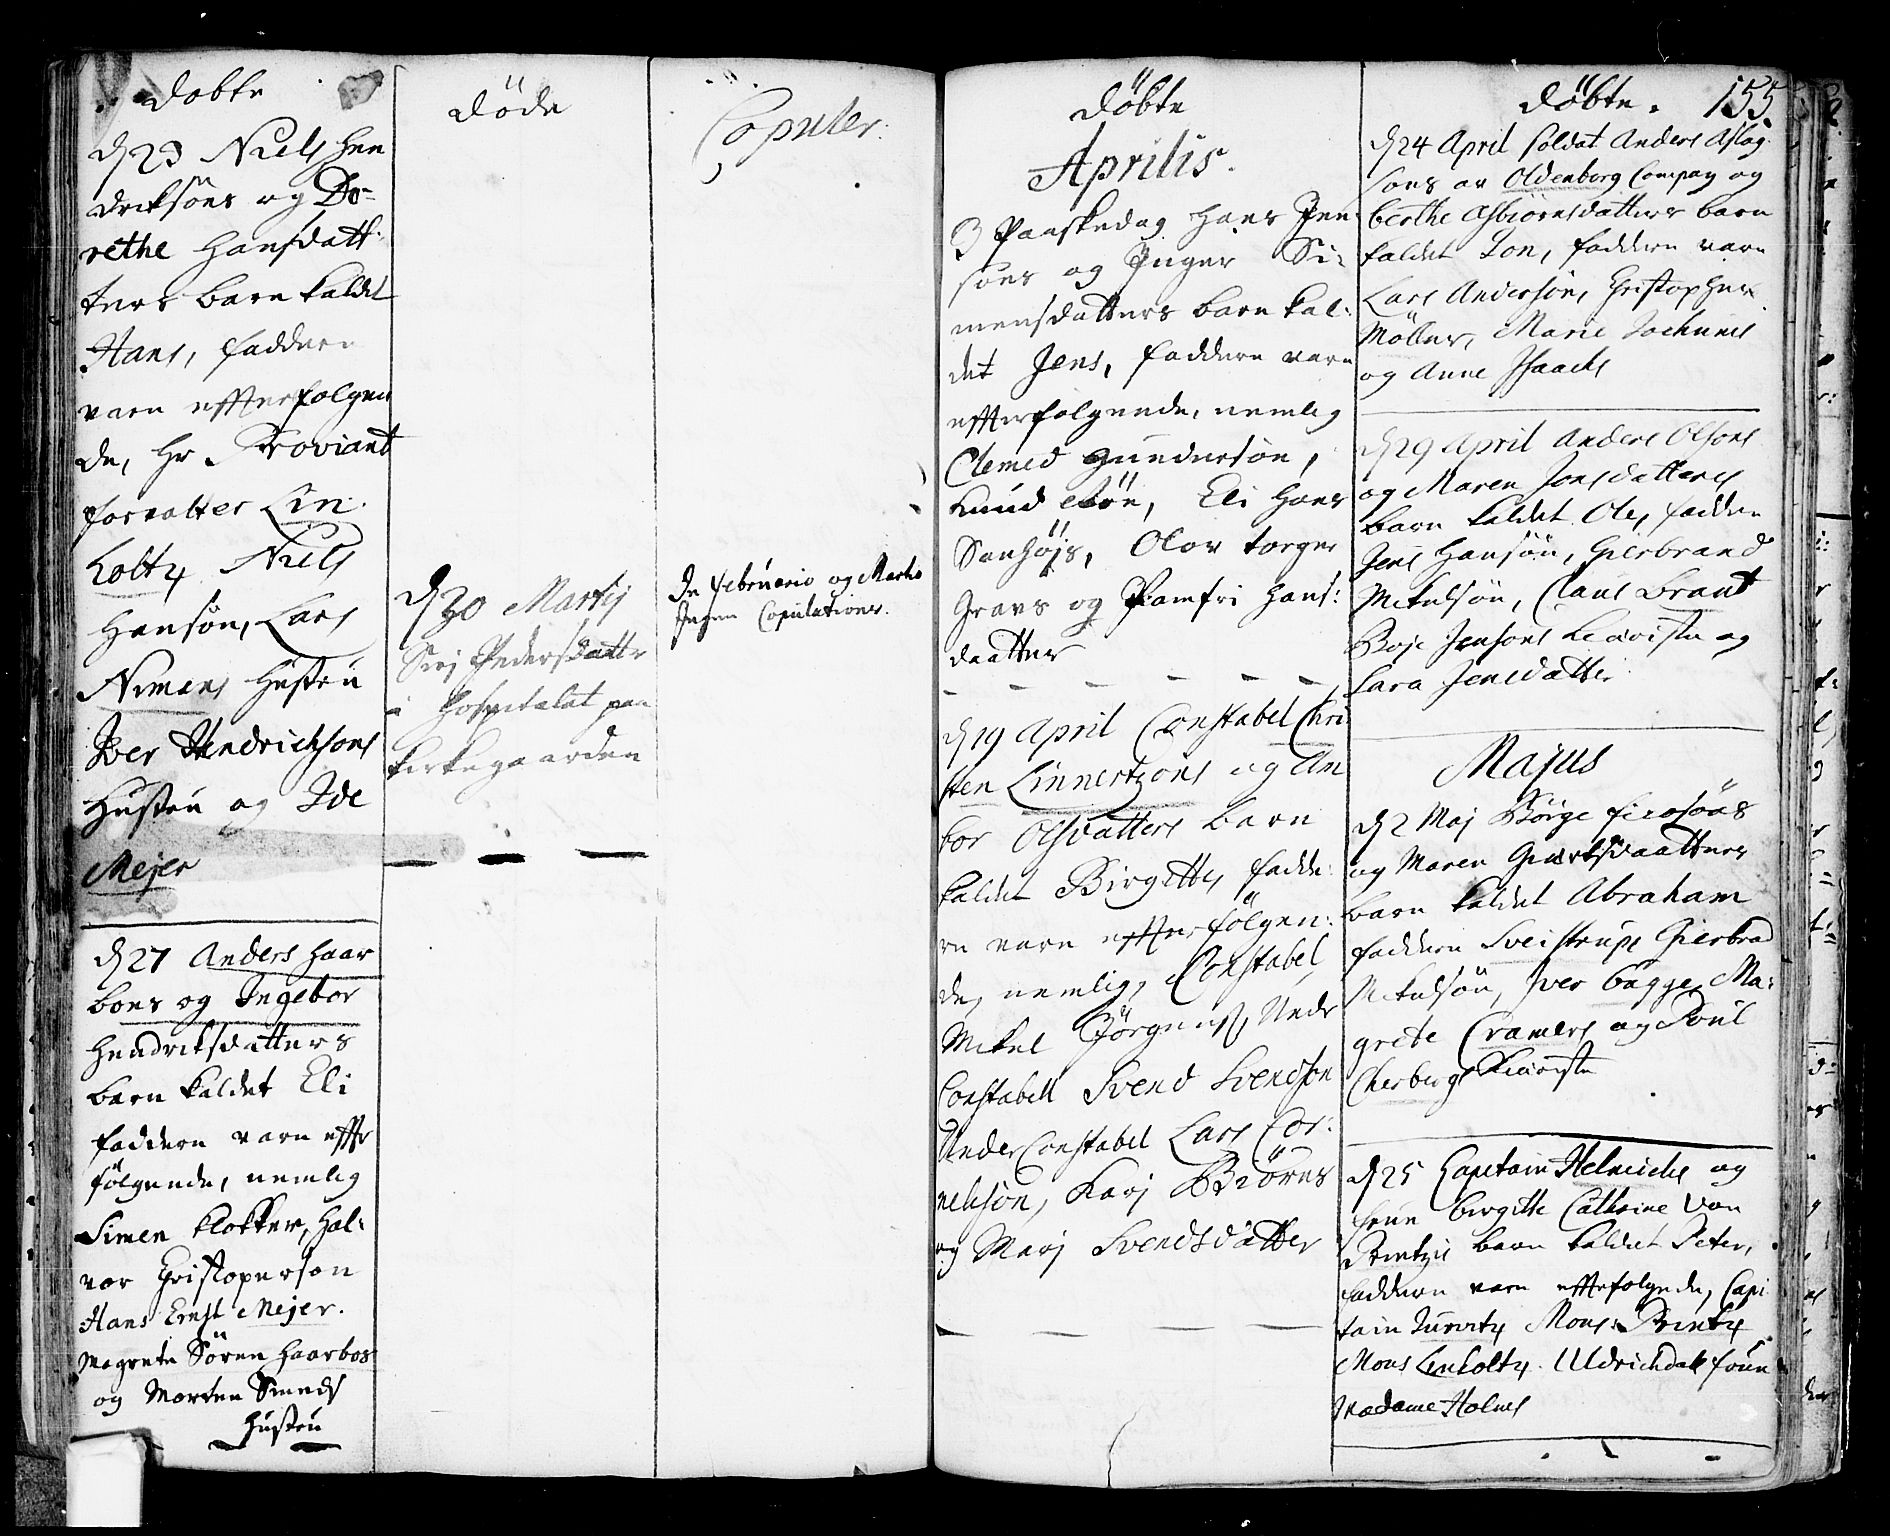 Døbte
d 23 Niels Hen
driksöns og Do-
rethe Hansdatt-
ters barn kaldet
Hans, faddere
vare effterfolgen
de, Hr Proviant
forvalter Lin-
holtz Niels
Hansön, Lars
Nimans Hustru
Iver Hendrichsons
Hustru og Ide
Mejer
d 27 Anders Haar
boes og Ingebor
Hendriksdatters
barn kaldet Eli
faddere vare efter
fölgende, nemlig
Simen klokker, Hal-
vor Christopersøn
Hans Ernst Mejer.
Magrete Sören Haarbos
og Morten Smeds
Hustru
döde
d 30 Martij
Siri Pedersdatter
i Hospitalet paa
kirkegaarden
Copuler:
De Februario og Martio
Ingen Copulationer.
döbte
Aprilis.
3 Paaskedag Hans Jen
söns og Inger Si-
mensdatters barn kal-
det Jens, faddere vare
effterfolgende, nemlig
Clemed Gundersön,
Knud Eli Hans
Olov torger
Gravs og Pamfri Hans:
daatter
d 19 April Constabel Chri
sten Linnertzons og An
bor Olsdatters barn
kaldet Birgitte, fadde-
re vare effterfölgen-
de, nemlig, Constabel
Mikel Jörgens, Under
Constabell Svend Svendson
Under Constabel Lars Cor-
nelisön, Kari Biörns
og Marj Svendsdatter
döbte. 155.
d 24 April soldat Anders Aslag
sons av Oldenborg Compag og
berthe Asbiörnsdatters barn
kaldet Jon, faddere vare
Lars Andersön, Christopher
Möller, Marie Jochums
og Anne Isaachs
d 29 April Anders Olsons
og Maren Jonsdatters
barn kaldet Ole, faddere
Jens Hansön, Gierbrand
Mikelsön, Claus Brant
Boje Jensons Kiæriste og
Sara Jensdatter
Majus
d 2 Maj Börge
og Maren daatters
barn kaldet Abraham
faddere Sveistrups Gierbrad
Mikelsön, Iver Bagge, Ma-
grete Cramers og Poul
Cherbergs Kiæriste
d 25 Capitain Helmichs og
frue Birgitte Cathrine von
Printzis barn kaldet Peter,
faddere vare efterfolgede, Capi
tain Mons: Printz
Mons Linholtz. Uldrichdals frue
Madame Holmes